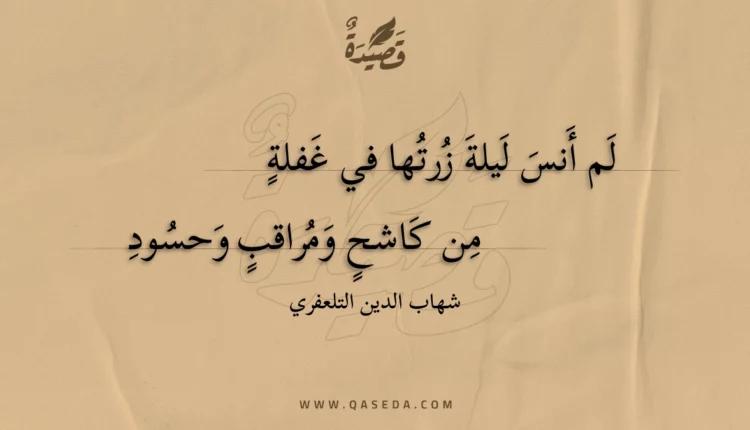 قَصِيدَةٌ
لَم أَنسَ لَيلةَ زُرتُها في غَفلةٍ
مِن كَاشحٍ وَمُراقبٍ وَحسُودِ
شهاب الدين التلعفري
WWW.QASEDA.COM